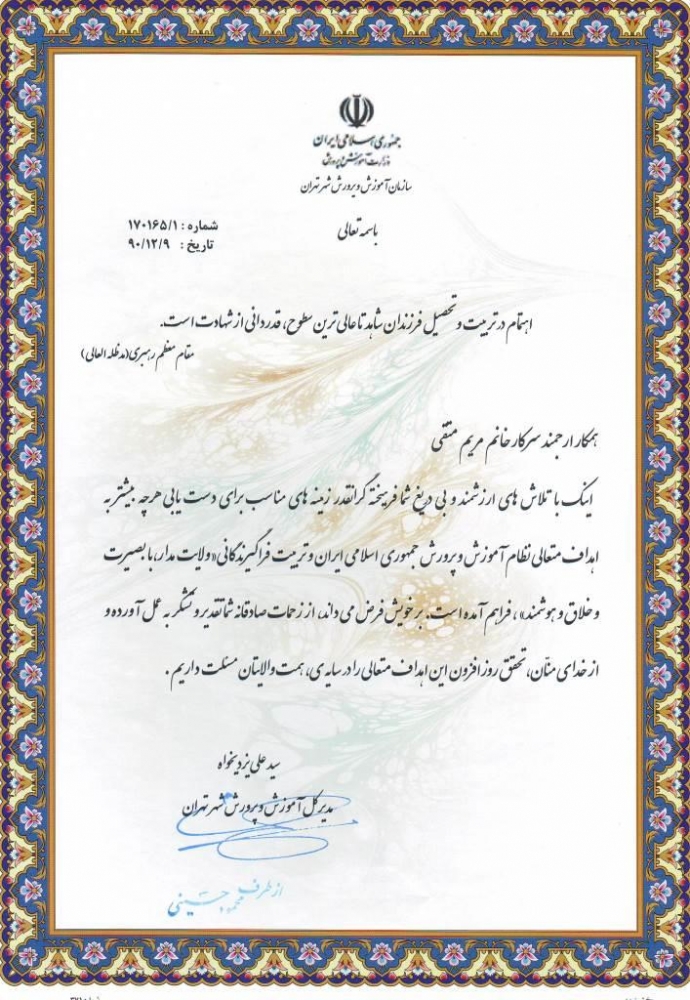 جمهوری اسلامی ایران
وزارت آموزش و پرورش
سازمان آموزش و پرورش شهر تهران
باسمه تعالی
شماره : ۱۷۰۱۶۵/۱
تاریخ : ۹۰/۱۲/۹
اهتمام در تربیت و تحصیل فرزندان شاهد تا عالی ترین سطوح، قدردانی از شهادت است.
مقام معظم رهبری(مدظله العالی)
همکار ارجمند سرکار خانم مریم متقی
اینک با تلاش های ارزشمند و بی دریغ شما فریخته گرانقدر زمینه های مناسب برای دست یابی هرچه بیشتر به
اهداف متعالی نظام آموزش و پرورش جمهوری اسلامی ایران و تربیت فراگیرندگانی«ولایت مدار، با بصیرت
و خلاق و هوشمند»، فراهم آمده است. بر خویش فرض می داند، از زحمات صادقانه شما تقدیر و تشکر به عمل آورده و
از خدای منّان، تحقق روز افزون این اهداف متعالی را در سایه ی، همت والایتان مسئلت داریم .
سید علی یزدیخواه
مدیر کل آموزش و پرورش شهر تهران
از طرف
محمود حسینی